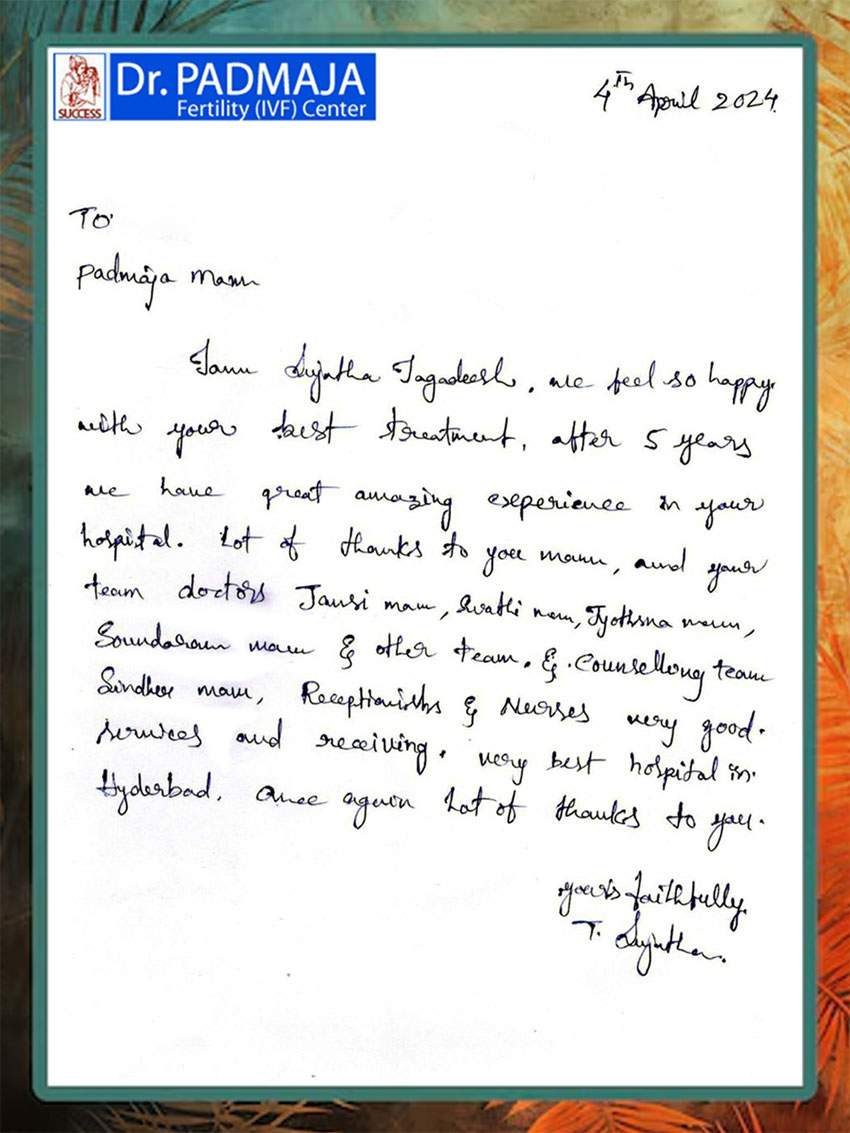 SUCCESS
Dr. PADMAJA
Fertility (IVF) Center
4th April 2024.
To
Padmaja mam
I am Sujatha Jagadeesh, we feel so happy.
with your best treatment, after 5 years
we have great amazing experience in your
hospital. Lot of thanks to you mam, and your
team doctors Jansi mam, Swathi mam, Jyothsna mam,
Soundaram mam & other team. & counselling team
Sindhu mam, Receptionists & Nurses very good.
services and receiving. very best hospital in.
Hyderbad. Once again Lot of thanks to you.
yours faithfully.
T. Sujatha.